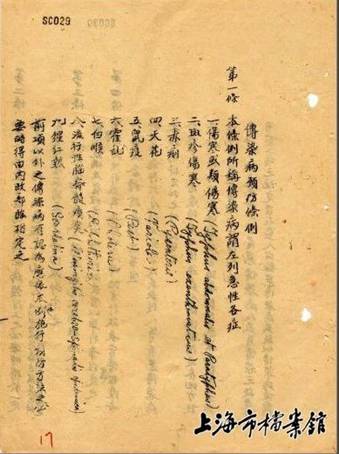 SC029
傳染病預防條例
第一條 本條例所稱傳染病謂左列急性各症
一、傷寒或類傷寒 (Typhus abdominalis et Paratyphus)
二、斑疹傷寒 (Typhus exanthematicus)
三、赤痢 (Dysenterie)
四、天花 (Variola)
五、鼠疫 (Pest)
六、霍亂 (Cholera)
七、白喉 (Diphtherie)
八、流行性腦脊髓膜炎 (Meningitis cerebro-spinalis epidemica)
九、猩紅熱 (Scarlatina)
前項以外之傳染病有認為應依本條例施行預防方法之必
要時得由內政部臨時指定之
17
上海市檔案館